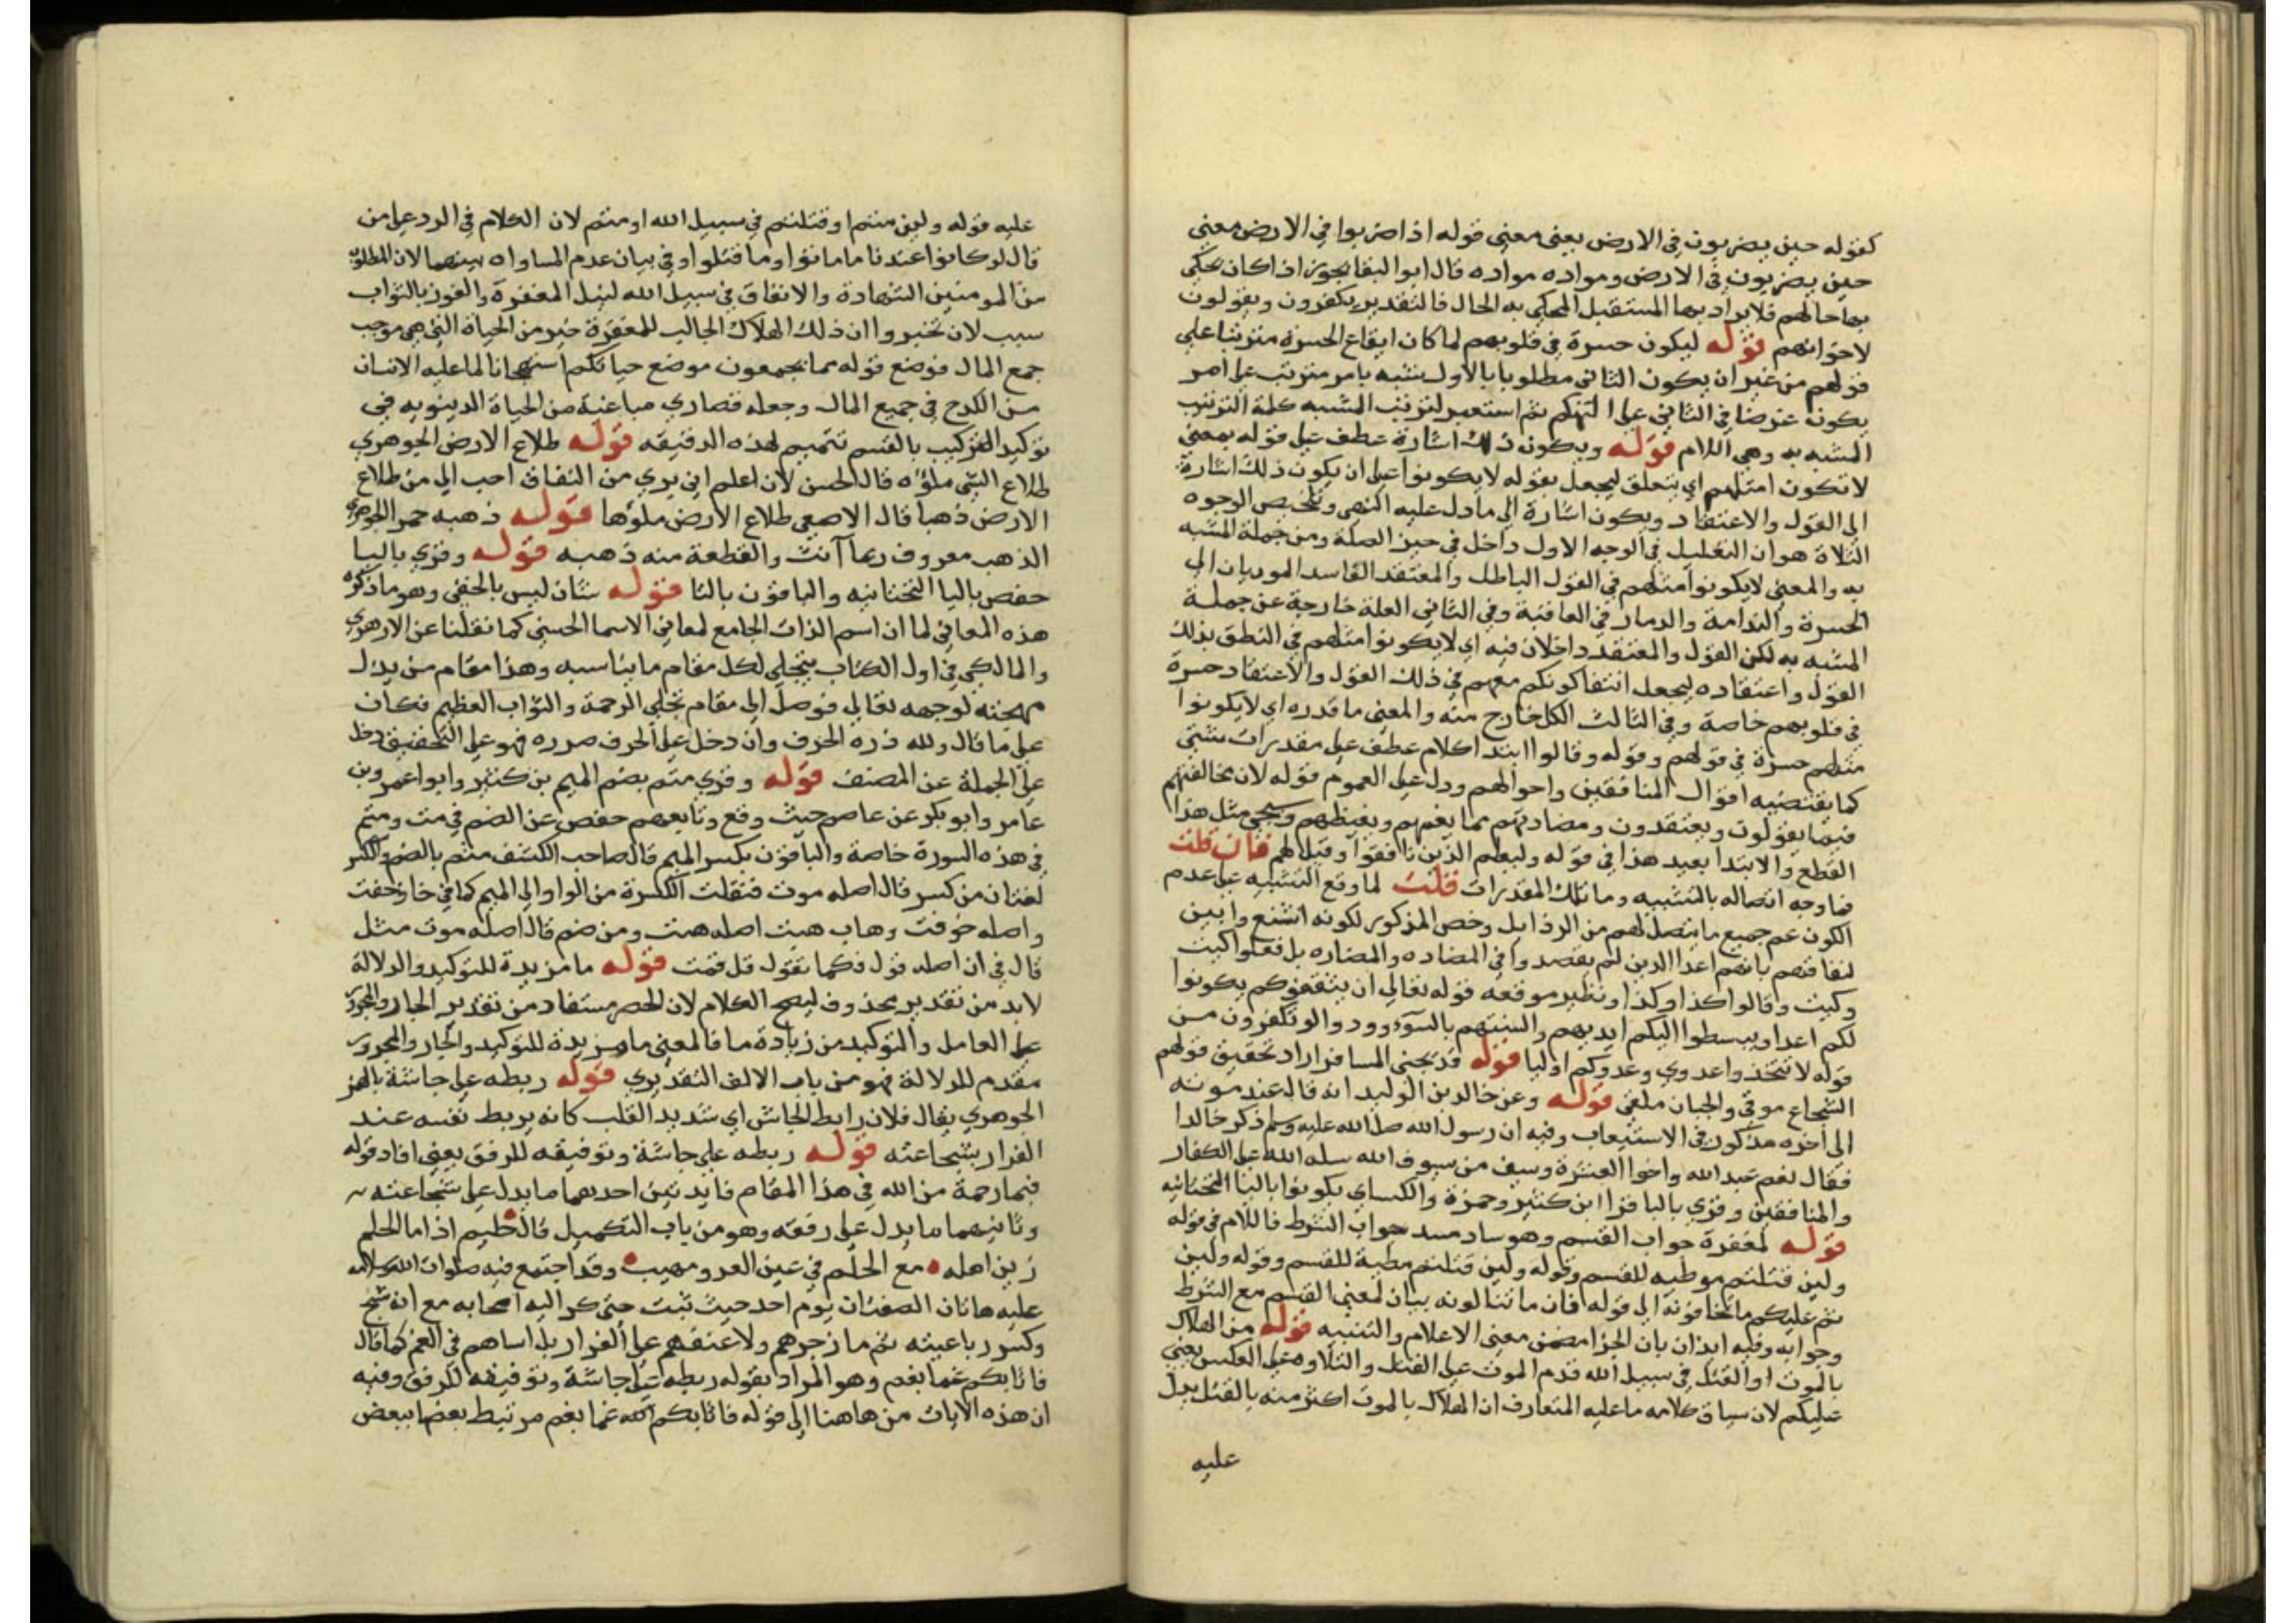 كقوله حين يضربون في الارض يعني معني قوله اذا ضربوا في الارض معني
حين يضربون في الارض ومواده مواده قال ابو البقا يجوز اذا كان يحكي
بها حالهم فلا يراد بها المستقبل المحكي به الحال فالتقدير يكفرون ويقولون
لاخوانهم قوله ليكون حسرة في قلوبهم لما كان ايقاع الحسرة مترتبا علي
قولهم من غير ان يكون الثاني مطلوبا بالاول شبه بامر مترتب علي امر
يكون غرضا في الثاني علي التهكم ثم استعير لترتب المشبه كلمة الترتب
المشبه به وهي اللام قوله ويكون ذلك اشارة عطف علي قوله بمعني
لا تكون امثلهم اي يتعلق ليجعل بقوله لا يكونوا علي ان يكون ذلك اشارة
الي القول والاعتقاد ويكون اشارة الي ما دل عليه النهي وتلخيص الوجوه
الثلاثة هو ان التعليل في الوجه الاول داخل في حيز الصلة ومن جملة المشبه
به والمعني لا يكونوا مثلهم في القول الباطل والمعتقد الفاسد الموديان الي
الحسرة والندامة والدمار في العاقبة وفي الثاني العلة خارجة عن جملة
المشبه به لكن القول والمعتقد داخلان فيه اي لا يكونوا مثلهم في النطق بذلك
القول واعتقاده ليجعل انتفا كونكم معهم في ذلك القول والاعتقاد حسرة
في قلوبهم خاصة وفي الثالث الكل خارج منه والمعني ما قدره اي لا يكونوا
مثلهم حسرة في قولهم وقوله وقالوا ابتدا كلام عطف علي مقدرات شتي
كما يقتضيه اقوال المنافقين واحوالهم ودل علي العموم قوله لان مخالفتهم
فيما يقولون ويعتقدون ومضادتهم مما يغمهم ويغيظهم وسيجي مثل هذا
القطع والابتدا بعيد هذا في قوله وليعلم الذين نافقوا وقيل لهم فان قلت
فما وجه اتصاله بالتشبيه وما تلك المقدرات قلت لما وقع التشبيه علي عدم
الكون عم جميع ما يتصل لهم من الرذايل وخص المذكور لكونه اشنع وابين
لنفاقهم بانهم اعدا الدين لم يقصدوا في المضاده والمضاره بل فعلوا كيت
وكيت وقالوا كذا وكذا ونظير موقعه قوله تعالي ان يثقفوكم يكونوا
لكم اعدا ويبسطوا اليكم ايديهم والسنتهم بالسوء وودوا لو تكفرون من
قوله لا تتخذوا عدوي وعدوكم اوليا قوله قد يجني المسافر اراد تحقيق قولهم
الشجاع موقي والجبان ملقي قوله وعن خالد بن الوليد انه قال عند موته
الي اخره مذكور في الاستيعاب وفيه ان رسول الله صلي الله عليه وسلم ذكر خالدا
فقال نعم عبد الله واخوا العشرة وسيف من سيوف الله سله الله علي الكفار
والمنافقين وقري باليا قرا ابن كثير وحمزة والكساي يكونوا باليا التحتانيه
قوله لمغفرة جواب القسم وهو ساد مسد جواب الشرط فاللام في قوله
ولين قتلتم موطيه للقسم وقوله ولين قتلتم مطية للقسم وقوله ولين
تم عليكم ما تخافونه الي قوله فان ما تنالونه بيان لمعني القسم مع الشرط
وجوابه وفيه ايذان بان الجزا مضمن معني الاعلام والتنبيه قوله من الهلاك
بالموت او القتل في سبيل الله قدم الموت علي القتل والتلاوة علي العكس يعني
عليكم لان سياق كلامه ما عليه المتعارف ان الهلاك بالموت اكثر منه بالقتل يدل
عليه
عليه قوله ولين متم او قتلتم في سبيل الله او متم لان الكلام في الرد علي من
قال لو كانوا عندنا ما ماتوا وما قتلوا وفي بيان عدم المساواه بينهما لان المطلوب
من المومنين الشهادة والانفاق في سبيل الله لنيل المغفرة والفوز بالثواب
سبب لان تخبروا ان ذلك الهلاك الجالب للمغفرة خير من الحياة التي هي موجب
جمع المال فوضع قوله مما يجمعون موضع حياتكم استهجانا لما عليه الانسان
من الكدح في جميع المال وجعله قصاري مباغية من الحياة الدينويه في
توكيد التركيب بالقسم تتميم لهذه الدقيقه قوله طلاع الارض الجوهري
طلاع الشي ملؤه قال الحسن لان اعلم اني بري من النفاق احب الي من طلاع
الارض ذهبا قال الاصمعي طلاع الارض ملوها قوله ذهبه حمرا الجوهري
الذهب معروف ربما آنث والقطعة منه ذهبه قوله وقري باليا
حفص باليا التحتانيه والباقون بالتا قوله شان ليس بالخفي وهو ما ذكره
هذه المعاني لما ان اسم الذات الجامع لمعاني الاسما الحسني كما نقلنا عن الازهري
والمالكي في اول الكتاب يتجلي لكل مقام ما يناسبه وهذا مقام من بذل
مهجته لوجهه تعالي فوصل الي مقام تجلي الرحمة والثواب العظيم فكان
علي ما قال ولله ذره الحرف وان دخل علي الحرف صوره فهو علي التحقيق دخل
علي الجملة عن المصنف قوله وقري متم بضم الميم بن كثير وابو عمرو بن
عامر وابو بكر عن عاصم حيث وقع وتابعهم حفص عن الضم في مت ومتم
في هذه السورة خاصة والباقون بكسر الميم قال صاحب الكشف متم بالضم والكسر
لغتان من كسر قال اصله موت فنقلت الكسرة من الواو الي الميم كما في خاف خفت
واصله خوفت وهاب هبت اصله هبت ومن ضم قال اصله موت مثل
قال في ان اصله قول فكما تقول قل قمت قوله ما مزيدة للتوكيد والدلالة
لابد من تقدير محذوف ليصح الكلام لان الحصر مستفاد من تقدير الجار والمجرور
علي العامل والتوكيد من زيادة ما فالمعني ما مزيدة للتوكيد والجار والمجرور
مقدم للدلالة فهو من باب الالف التقديري قوله ربطه علي جاشة بالهمز
الجوهري يقال فلان رابط الجاش اي شديد القلب كانه يربط نفسه عند
الفرار بشجاعته قوله ربطه علي جاشة وتوفيقه للرفق يعني افاد قوله
فبما رحمة من الله في هذا المقام فايدتين احديهما ما يدل علي شجاعته
وثانيهما ما يدل علي رفقه وهو من باب التكميل قال حليم اذا ما الحلم
زين اهله مع الحلم في عين العدو مهيب وقد اجتمع فيه صلوات الله وسلامه
عليه هاتان الصفتان يوم احد حيث ثبت حتي كر اليه اصحابه مع انه شج
وكسر رباعيته ثم ما زجرهم ولا عنفهم علي الفرار بل اساهم في الغم كما قال
فاثابكم غما بغم وهو المراد بقوله ربطه علي جاشة وتوفيقه للرفق وفيه
ان هذه الايات من هاهنا الي قوله فاثابكم الله غما بغم مرتبط بعضها ببعض